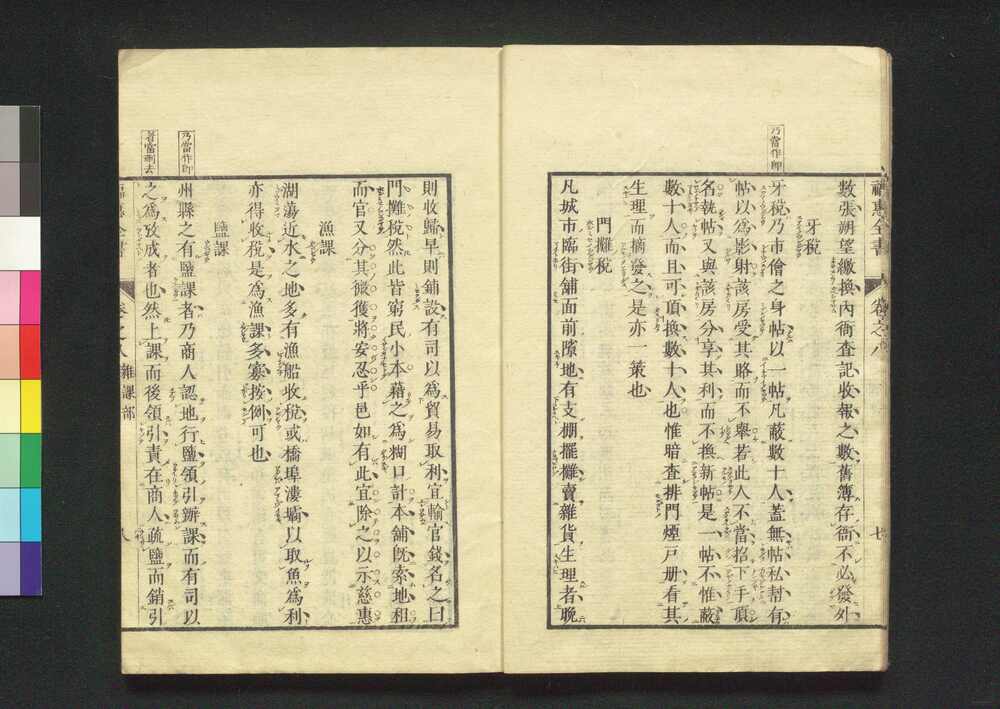 乃當作即
數張朔望繳換內衙查記收報之數舊簿存衙不必發外
牙稅
牙稅乃市儈之身帖以一帖凡蔽數十人蓋無帖私幇有
帖以爲影射該房受其賂而不舉若此人不當招下手頂
名執帖又與該房分享其利而不換新帖是一帖不惟蔽
數十人而且可頂換數十人也惟暗查排門煙戸册看其
生理而摘發之是亦一策也
門攤稅
凡城市臨街舖面前隙地有支棚擺攤賣雜貨生理者晚
則收歸早則鋪設有司以爲貿易取利宜輸官錢名之曰
門攤稅然此皆窮民小本藉之爲糊口計本舖旣索地租
而官又分其微獲將安忍乎邑如有此宜除之以示慈惠
漁課
湖蕩近水之地多有漁船收稅或橋埠漊壩以取魚爲利
亦得收稅是爲漁課多寡按例可也
鹽課
乃當作即
州縣之有鹽課者乃商人認地行鹽領引辦課而有司以
者當刪去
之爲攷成者也然上課而後領引責在商人疏鹽而銷引
福惠全書 卷之八 雜課部 八